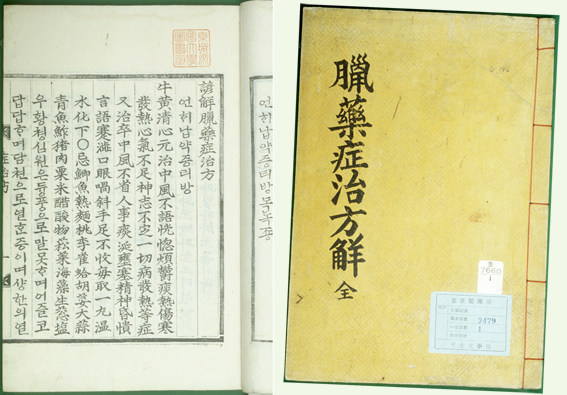 언해납약증티방목녹죵
諺解臘藥症治方
언해납약증티방
牛黃清心元治中風不語恍惚煩鬱痰熱傷寒
發熱心氣不足神志不定一切病發熱等症
又治卒中風不省人事痰涎壅塞精神昏憒
言語蹇澁口眼喎斜手足不收每取一丸溫
水化下〇忌鯽魚熱麵桃李雀蛤胡荽大蒜
青魚鮓猪肉粟米醋酸物菘菜海藻生葱塩
우황쳥심원은듕풍으로말못ᄒᆞ며어즐코
답답ᄒᆞ며담쳔으로열훈증이며샹한의열
臘藥症治方解 全
7680
1
3479
1